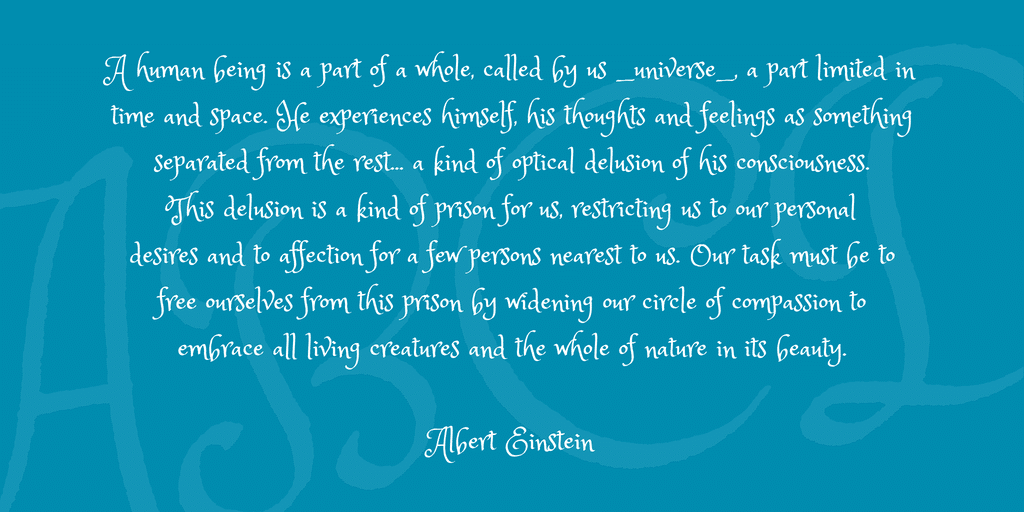 A human being is a part of a whole, called by us _universe_, a part limited in
time and space. He experiences himself, his thoughts and feelings as something
separated from the rest... a kind of optical delusion of his consciousness.
This delusion is a kind of prison for us, restricting us to our personal
desires and to affection for a few persons nearest to us. Our task must be to
free ourselves from this prison by widening our circle of compassion to
embrace all living creatures and the whole of nature in its beauty.
Albert Einstein
ABCD